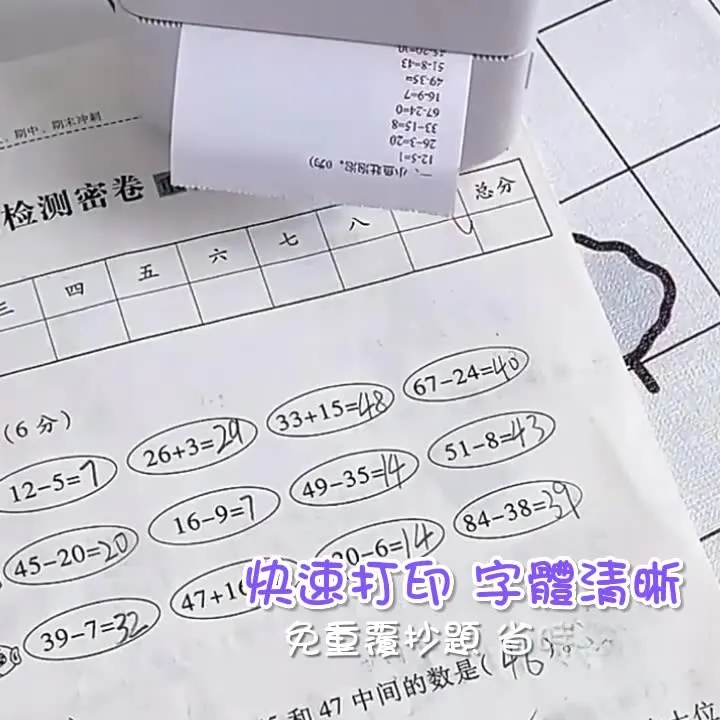 45-20=20
51-8=43
49-35=
16-9=7
67-24=0
33-15=8
26-3=20
12-5=1
期中、期末冲刺
检测密卷
三 四 五 六 七 八 总分
(6分)
12-5=7 26+3=29 33+15=48 67-24=40
45-20=20 16-9=7 49-35=14 51-8=43
39-7=32 47+1 20-6=14 84-38=39
快速打印 字體清晰
免重覆抄題 省時
和 47 中间的数是(46)。
位